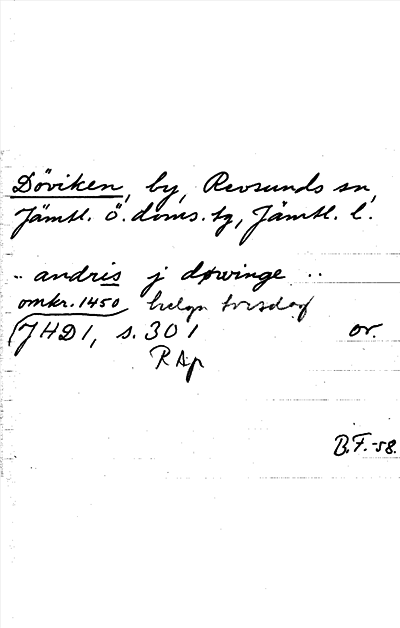 Döviken, by, Revsunds sn,
Jämtl. ö. doms.tg, Jämtl. l.
.. andris j døwinge ..
omkr. 1450 helgn torsdag
JHD1, s. 301 or.
RAp
B.F.-58.